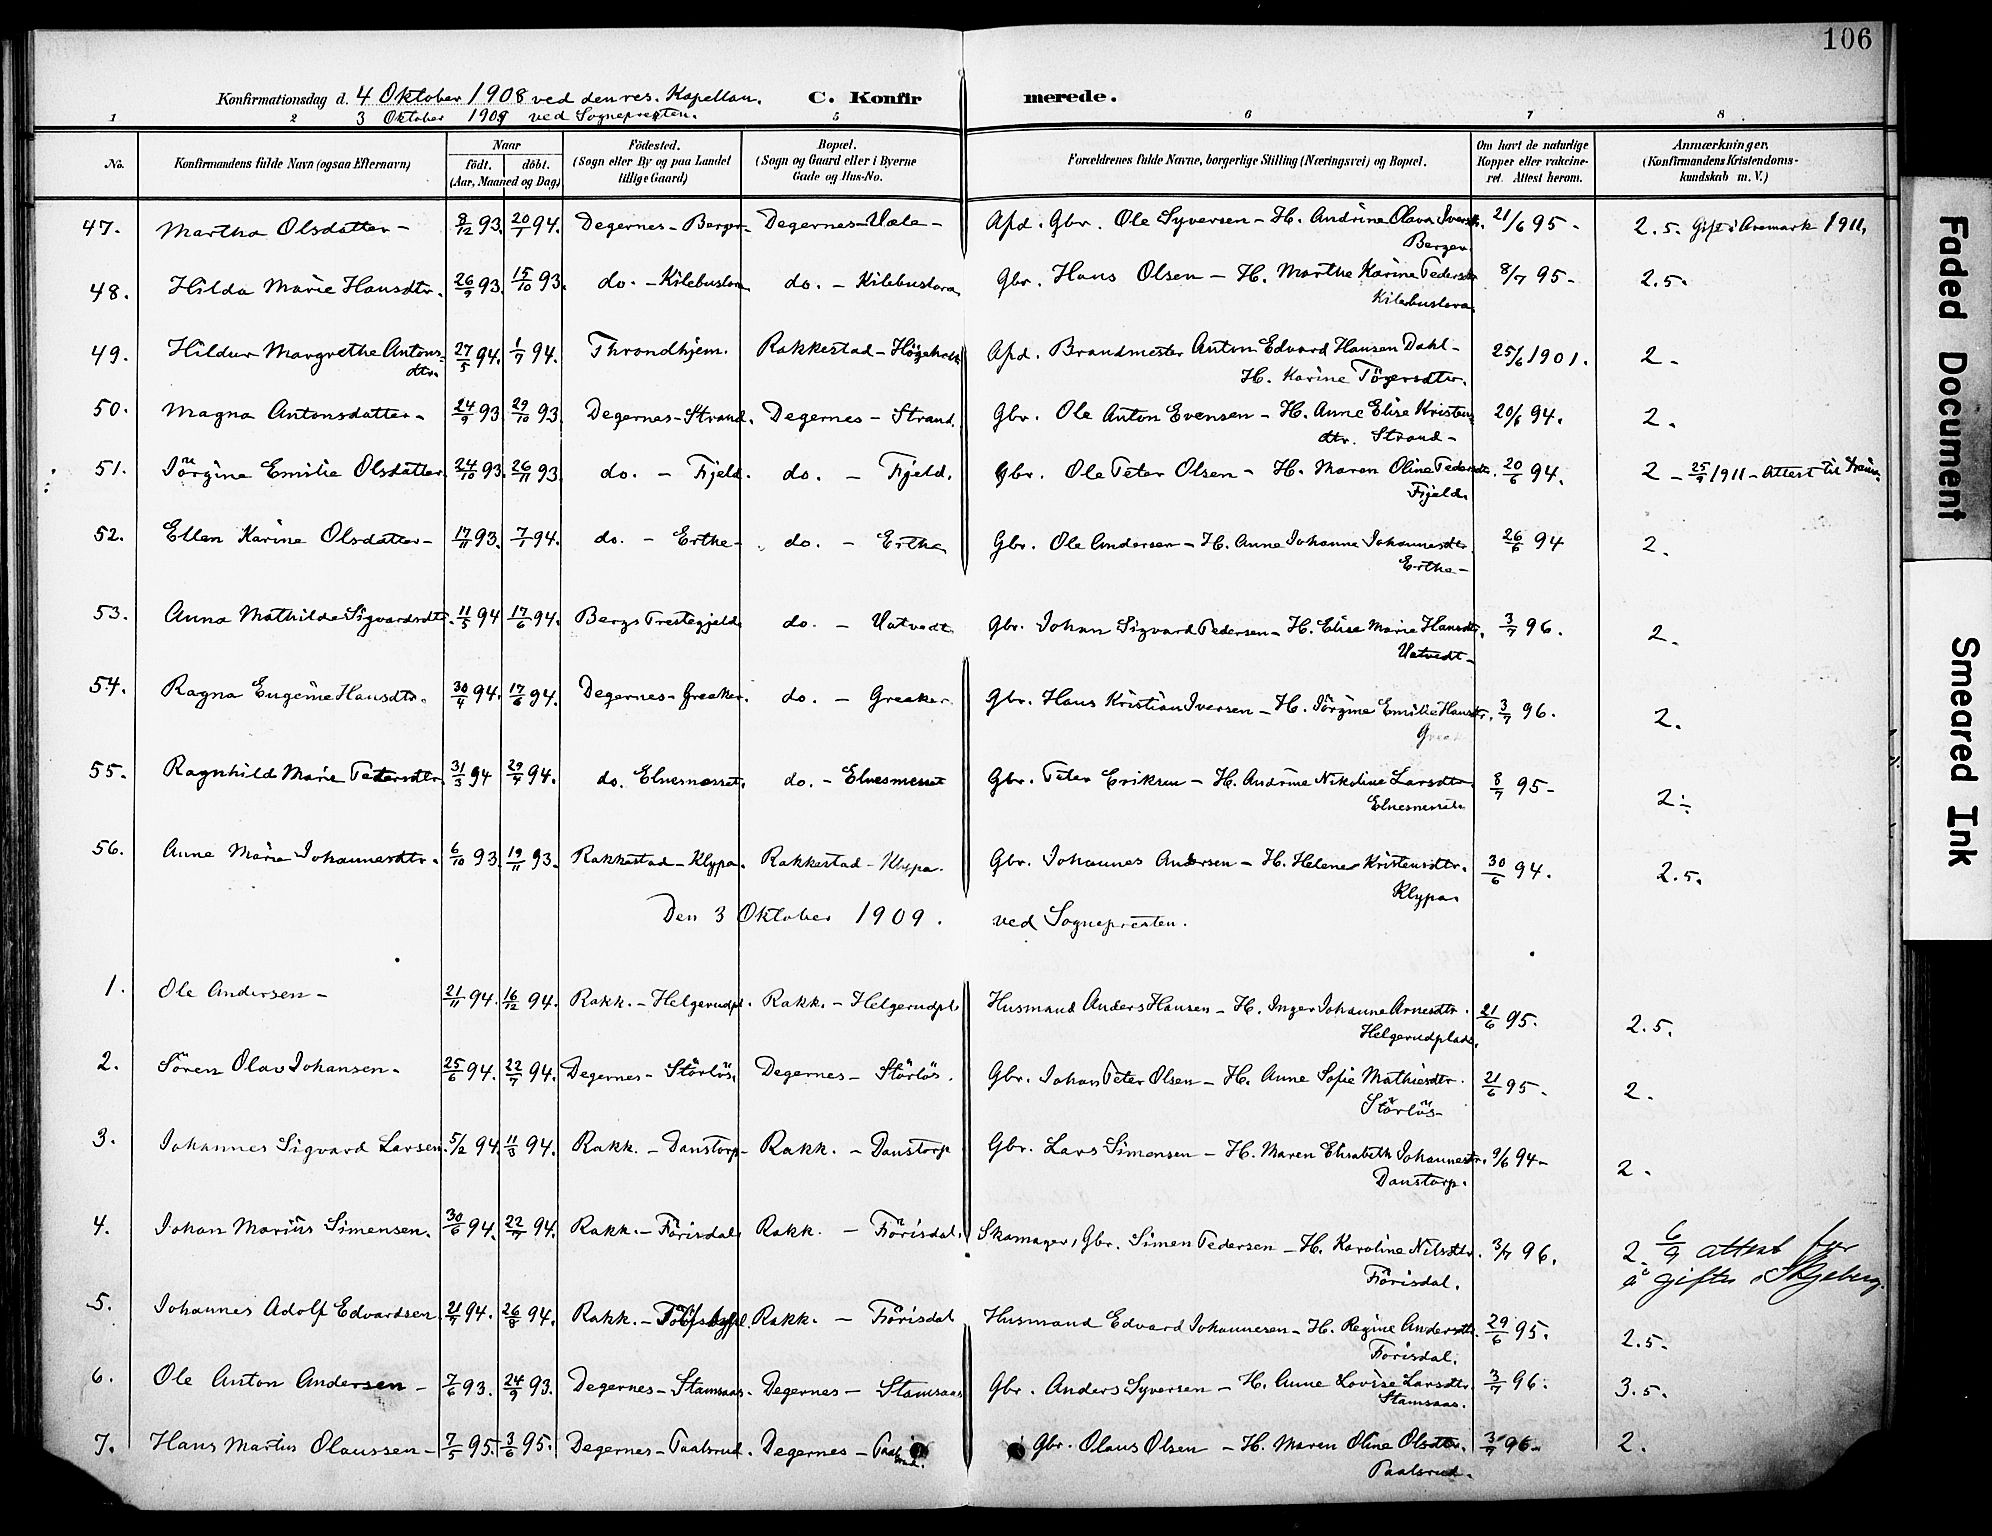 106
Konfirmationsdag d. 4 Oktober 1908 ved den res. Kapellan. C. Konfirmerede.
3 Oktober 1909 ved Sognepresten.
1 2 5 6 7 8
No. Konfirmandens fulde Navn (ogsaa Efternavn) Naar födt. döbt. (Aar, Maaned og Dag) Födested. (Sogn eller By og paa Landet tillige Gaard) Bopæl. (Sogn og Gaard eller i Byerne Gade og Hus-No. Forældrenes fulde Navne, borgerlige Stilling (Næringsvei) og Bopæl. Om havt de naturlige Kopper eller vakcineret. Attest herom. Anmærkninger, (Konfirmandens Kristendomskundskab m. V.)
47. Martha Olsdatter - 8/12 93. 20/1 94. Degernes - Berger - Degernes - Væle - Afd. Gbr. Ole Syversen - H. Andrine Olava Iversdtr. 21/6 95 - 2.5. Gift i Aremark 1911,
Berger
48. Hilda Marie Hansdtr. 26/9 93. 15/10 93. do. - Kilebuslora do. - Kilebuslora Gbr. Hans Olsen - H. Marthe Karine Pedersdtr 8/7 95 - 2.5.
Kilebuslora
49. Hildur Margrethe Antons- 27/5 94. 1/7 94. Throndhjem. Rakkestad - Afd. Brandmester Anton Edvard Hansen Dahl - 25/6 1901. 2 -
dtr. H. Karine Tögersdtr.
50. Magna Antonsdatter - 24/9 93 29/10 93. Degernes - Strand. Degernes - Strand. Gbr. Ole Anton Evensen - H. Anne Elise Kristen- 20/6 94. 2.
dtr. Strand -
51. Jörgine Emilie Olsdatter 24/10 93 26/11 93. do. - Fjeld. do. - Fjeld. Gbr. Ole Peter Olsen - H. Maren Oline Pedersdtr. 20/6 94. 2 - 25/9 1911 - Attest til
Fjeld.
52. Ellen Karine Olsdatter - 17/11 93. 7/1 94. do. - Erthe - do. - Erthe Gbr. Ole Andersen - H. Anne Johanne Johannesdtr. 26/6 94 2.
Erthe -
53. Anna Mathilde Sigvardsdtr. 11/5 94 17/6 94. Bergs Prestegjeld do. - Vatvedt Gbr. Johan Sigvard Pedersen - H. Elise Marie Hansdtr. 3/7 96. 2.
Vatvedt -
54. Ragna Eugenie Hansdtr. 30/4 94. 17/6 94. Degernes - Greaker. do. - Greaker. Gbr. Hans Kristian Iversen - H. Jörgine Emilie Hansdtr. 3/7 96. 2.
55. Ragnhild Marie Petersdtr. 31/3 94 29/4 94. do. Elnesnesset. do. - Elnesnesset Gbr. Peter Eriksen - H. Andrine Nikoline Larsdtr. 8/7 95 - 2 ÷
Elnesnesset
56. Anne Marie Johannesdtr. 6/10 93. 19/11 93. Rakkestad - Klypa. Rakkestad - Klypa. Gbr. Johannes Andersen - H. Helene Kristensdtr. 30/6 94. 2.5.
Klypa
Den 3 Oktober 1909. ved Sognepresten.
1. Ole Andersen - 21/11 94. 16/12 94. Rakk. - Helgerudpl. Rakk. - Helgerudpl Husmand Anders Hansen - H. Inger Johanne Arnesdtr. 21/6 95. 2.5.
Helgerudplads.
2. Sören Olav Johansen. 25/6 94. 22/7 94. Degernes - Störlös. Degernes - Störlös. Gbr. Johan Peter Olsen - H. Anne Sofie Mathisdtr. 21/6 95 - 2.
Störlös
3. Johannes Sigvard Larsen. 5/2 94. 11/3 94. Rakk. - Danstorp - Rakk. - Danstorp Gbr. Lars Simensen - H. Maren Elisabeth Johannesdtr. 9/6 94 - 2.
Danstorp.
4. Johan Marius Simensen. 30/6 94. 22/7 94. Rakk. - Förisdal. Rakk. - Förisdal. Skomager, Gbr. Simen Pedersen - H. Karoline Nilsdtr. 3/7 96. 2. 6/9 attest for
Förisdal. å gifte i Skjeberg.
5. Johannes Adolf Edvardsen 21/7 94. 26/8 94. Rakk. - Rakk. - Förisdal Husmand Edvard Johannesen - H. Regine Andersdtr. 29/6 95. 2.5.
Förisdal.
6. Ole Anton Andersen - 7/6 93. 24/9 93. Degernes - Stamsaas. Degernes - Stamsaas Gbr. Anders Syversen - H. Anne Lovise Larsdtr. 3/7 96. 3.5.
Stamsaas.
7. Hans Marius Olaussen - 7/5 95. 3/6 95. Degernes - Paalsrud. Degernes - Paalsrud. Gbr. Olaus Olsen - H. Maren Oline Olsdtr. 3/7 96. 2.
Paalsrud.
Faded Document
Smeared Ink